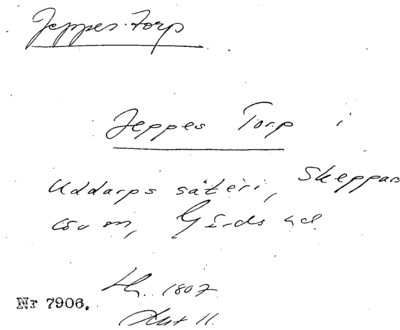 Jeppes-torp
Jeppes Torp i
Uddarps säteri, Skeppars
löv sn, Gärds hd.
Hg. 1807
Nr 7906.
Akt 11.